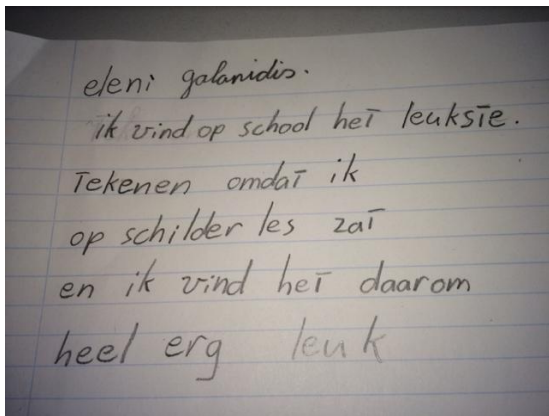 eleni galanidis.
ik vind op school het leukste.
Tekenen omdat ik
op schilder les zat
en ik vind het daarom
heel erg leuk